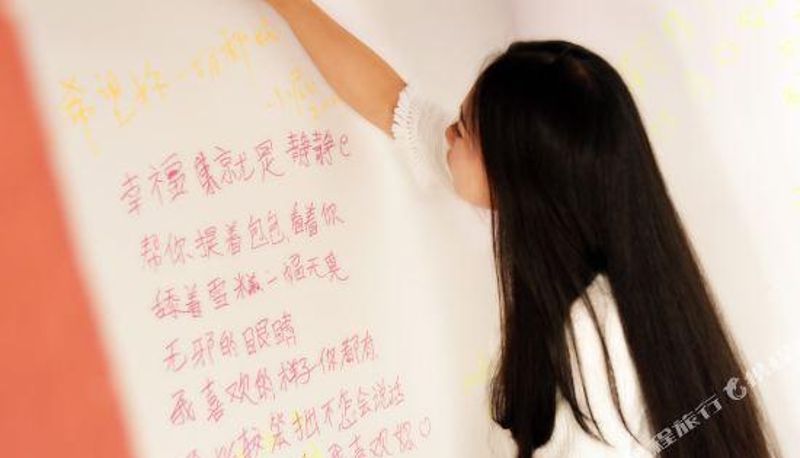 希望你一切都好
一小尾
幸福莫就是静静e
帮你提着包包看着你
舔着雪糕一幅天真
无邪的眼睛
我喜欢的样子你都有
我比较笨拙不怎会说话
喜欢你♡
携程旅行